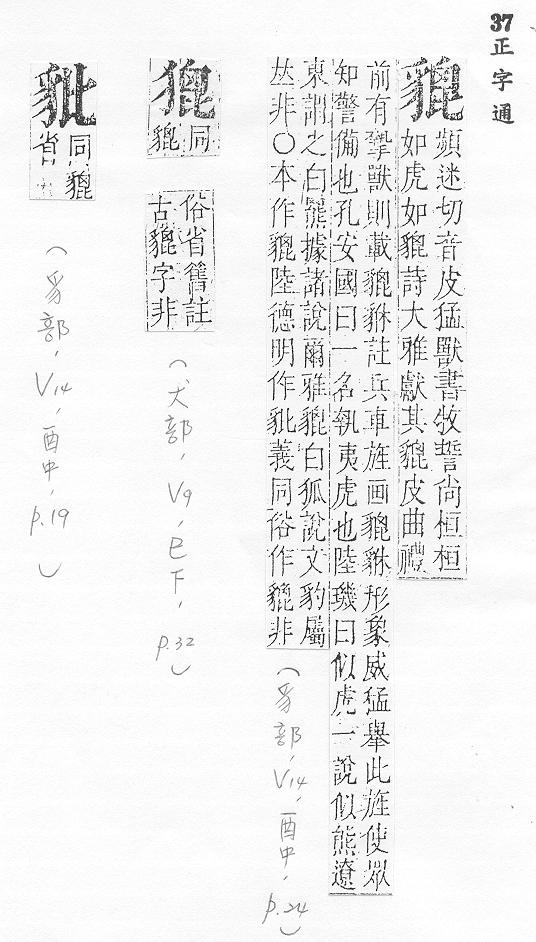 37正字通
貔
頻迷切音皮猛獸書牧誓尚桓桓
如虎如貔詩大雅獻其貔皮曲禮
前有摯獸則載貔貅註兵車旌画貔貅形象威猛舉此旌使眾
知警備也孔安國曰一名執夷虎也陸璣曰似虎一說似熊遼
東謂之白羆據諸說爾雅貔白狐說文豹屬
𠀤非○本作貔陸德明作豼義同俗作貔非
(豸部, V14, 酉中, p.24)
猊
同
貔
俗省舊註
古貔字非
(犬部, V9, 巳下, p.32)
豼
同貔
省
(豸部, V14, 酉中, p.19)